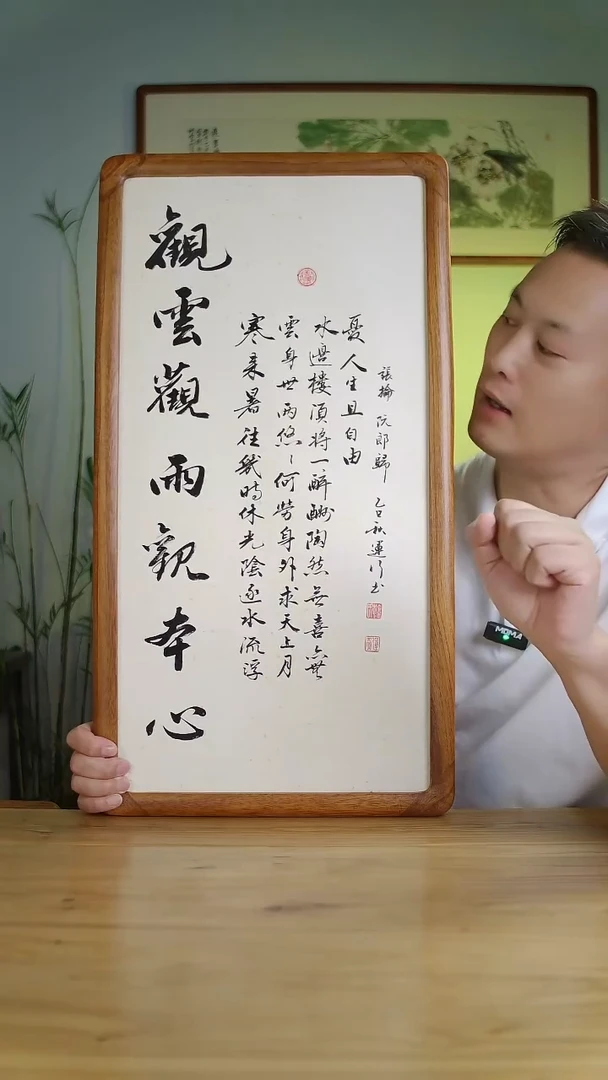 觀雲觀雨觀本心
寒來暑往幾時休光陰逐水流浮
雲身世兩悠〻何勞身外求天上月
水邊樓須將一醉酬陶然無喜無
憂人生且自由
張掄 阮郎歸 乙巳秋運行书
MOMA